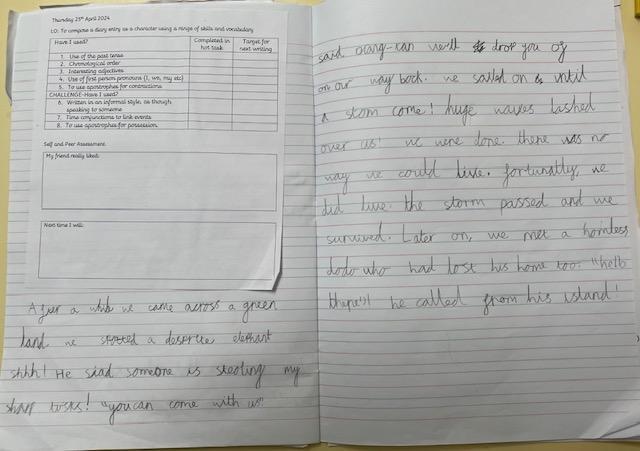 Thursday 25th April 2024
LO: To compose a diary entry as a character using a range of skills and vocabulary.
Have I used? Completed in hot task Target for next writing
1. Use of the past tense
2. Chronological order
3. Interesting adjectives
4. Use of first person pronouns (I, we, my etc)
5. To use apostrophes for contractions
CHALLENGE-Have I used?
6. Written in an informal style, as though speaking to someone
7. Time conjunctions to link events
8. To use apostrophes for possession.
Self and Peer Assessment.
My friend really liked:
Next time I will:
After a while we came across a green
land we spotted a desprite elephant
shhh! He siad someone is steoling my
sharp tusks! "you can come with us"
said orang-utan we'll drop you of
on our way back. we sailed on until
a storm come! huge waves lashed
over us! we were done. there was no
way we could live. fortunatly, we
did live. the storm passed and we
survived. Later on, we met a homless
dodo who had lost his home too. "hello
there"! he called from his island!